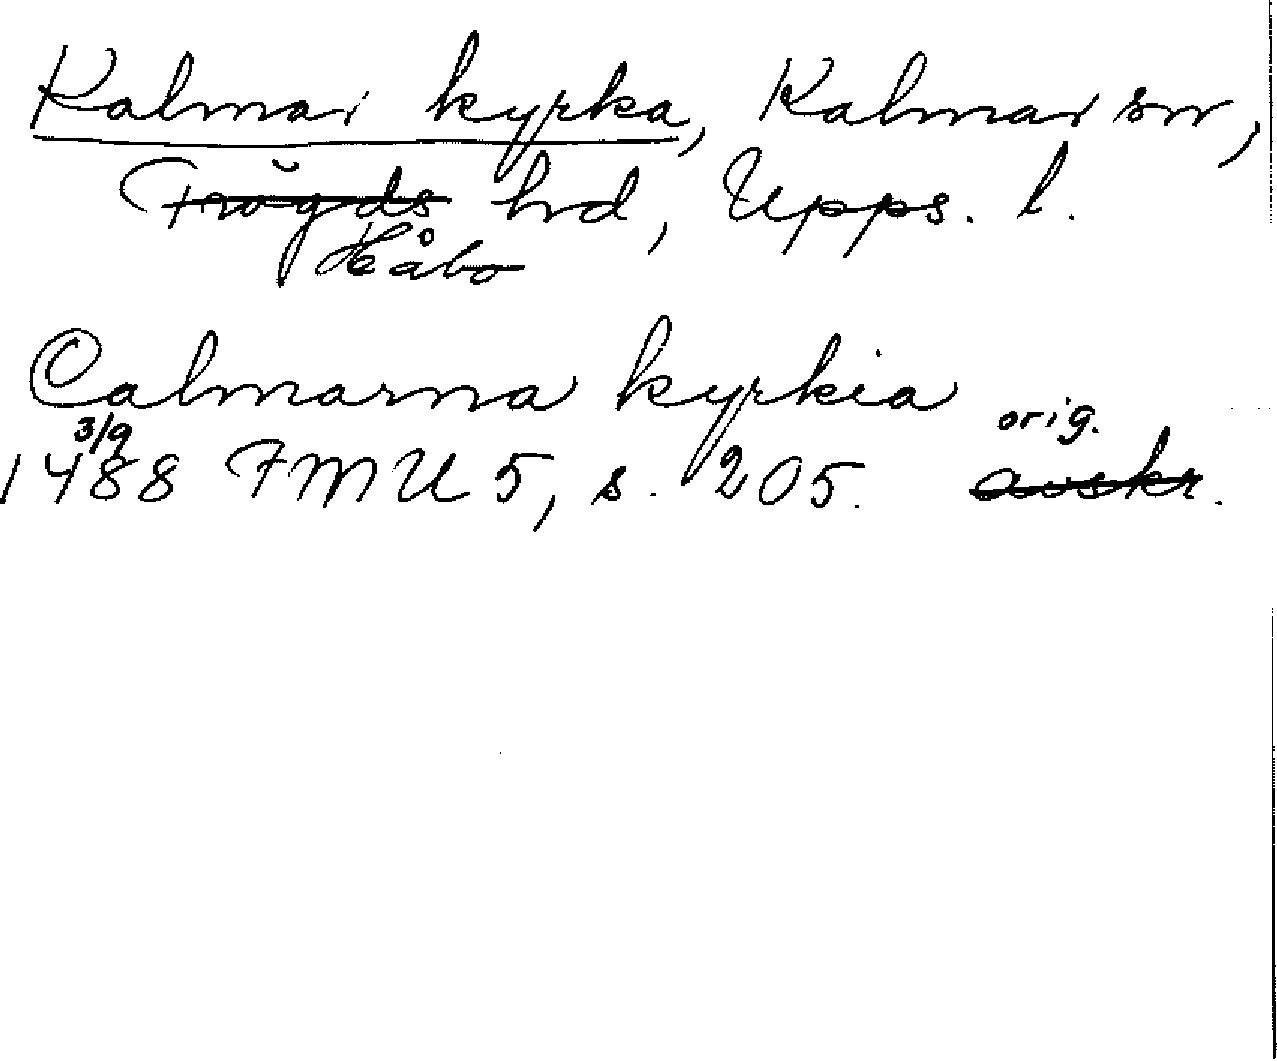 Kalmar kyrka, Kalmar sn,
Trögds hrd, Upps. l.
Håbo
Calmarna kyrkia
orig.
3/9
1488 FMU 5, s. 205. avskr.